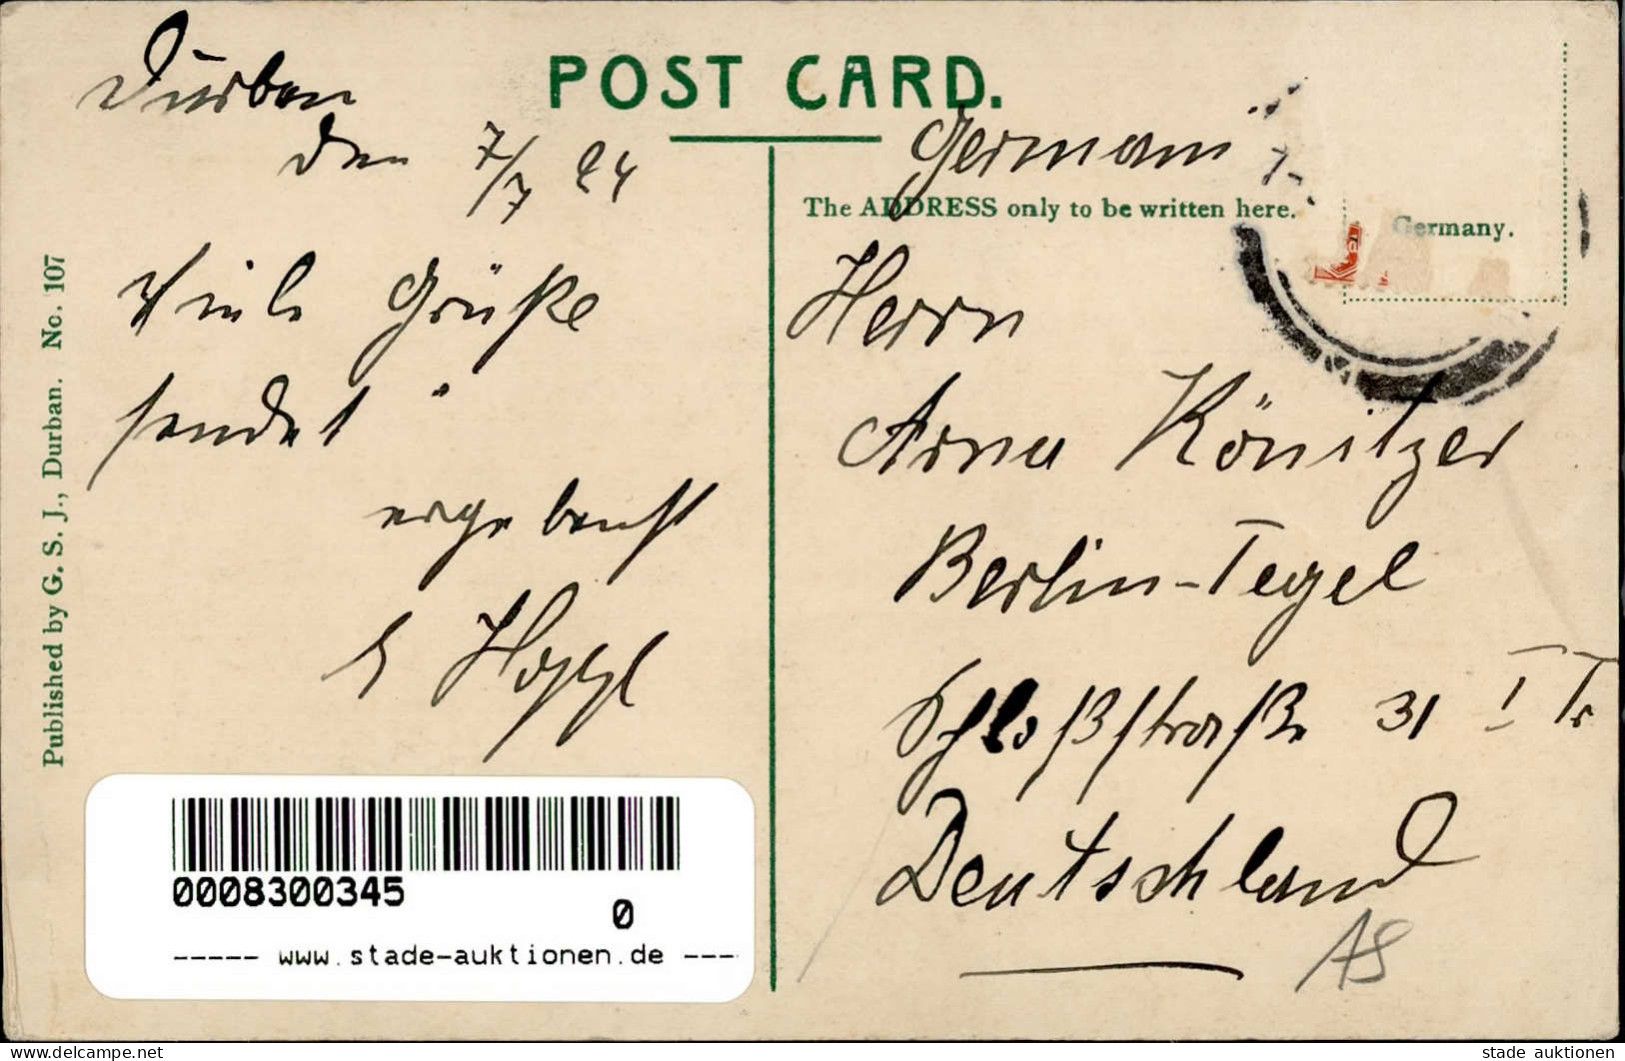 POST CARD.
Durban
den 7/7 24
Viele Grüße
sendet
ergebenst
Published by G. S. J., Durban. No. 107
Germani
The ADDRESS only to be written here.
Germany.
Herrn
Arno Könitzer
Berlin-Tegel
Schloßstraße 31 I Tr
Deutschland
AS
0008300345
0
----- www.stade-auktionen.de ---
https://www.delcampe.net
stade auktionen